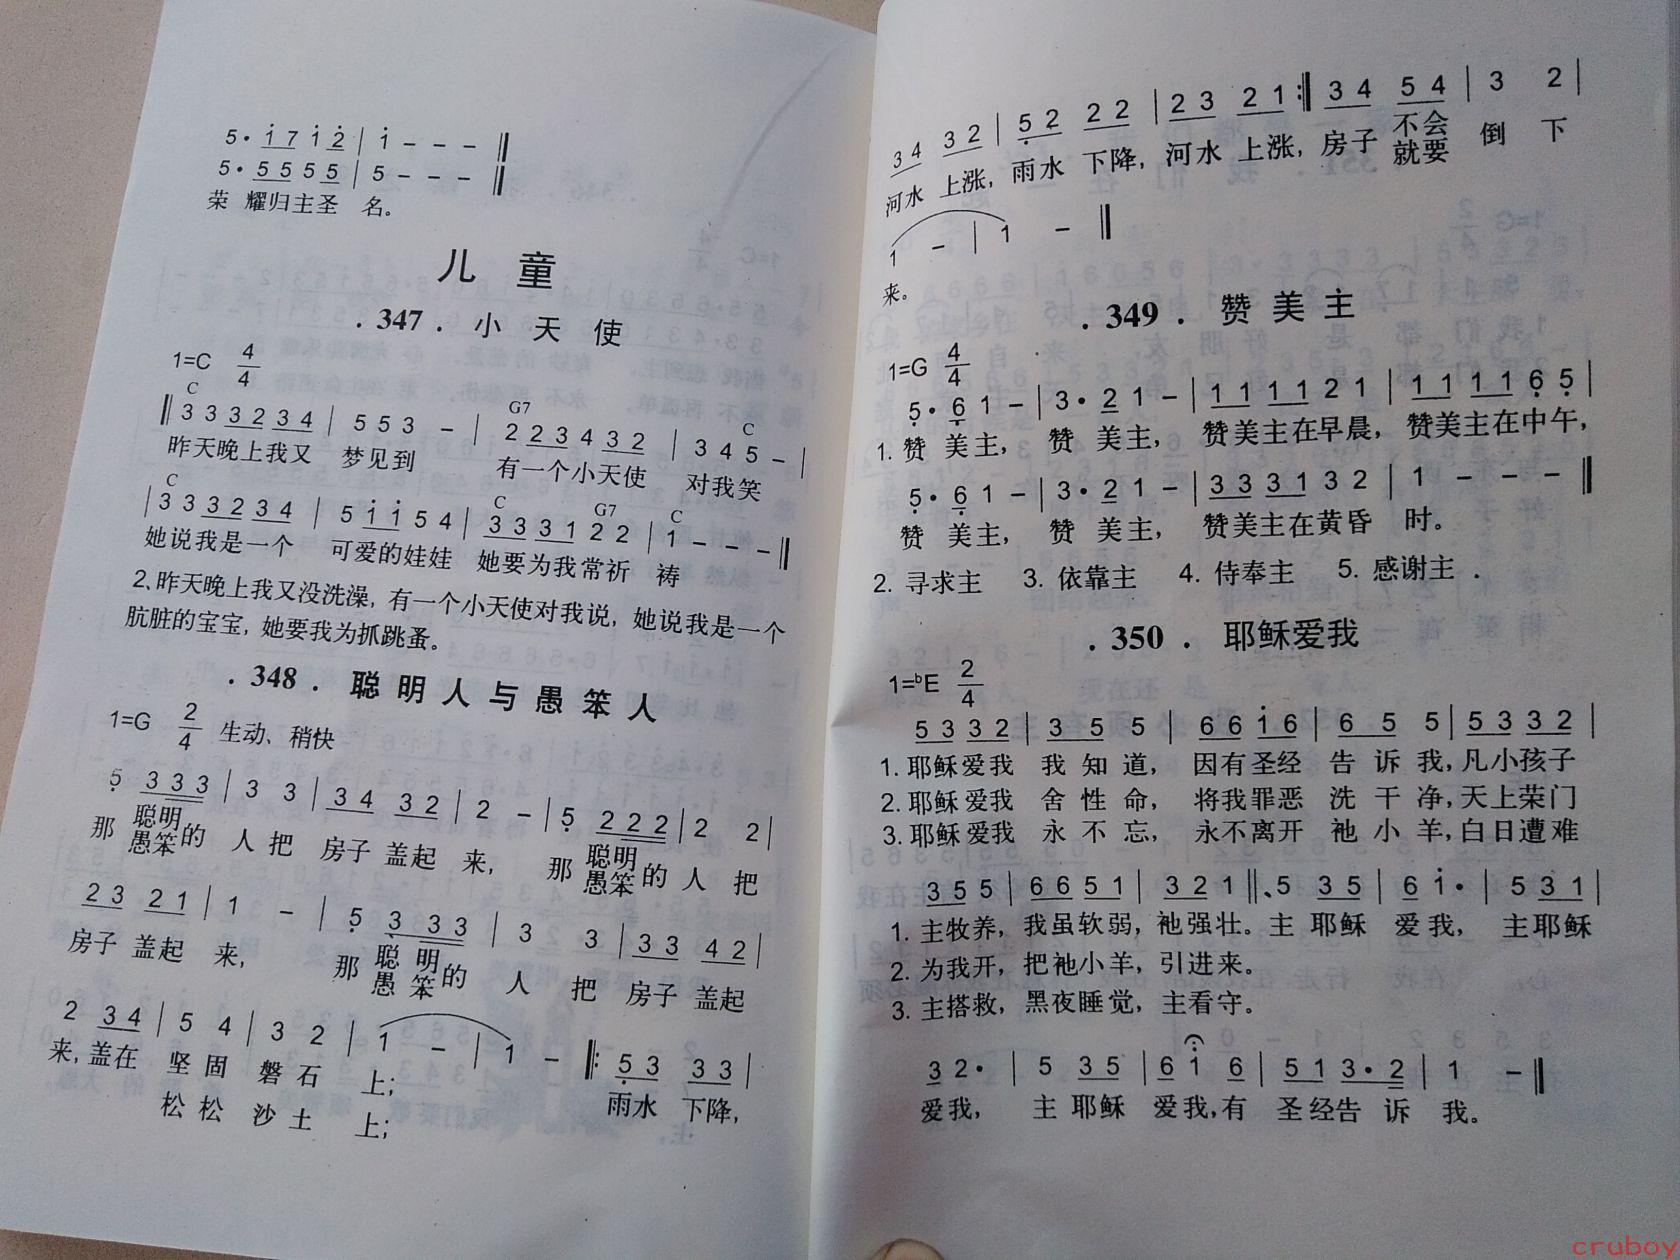 5· i 7 i 2̇ | i - - - ‖
5· 5 5 5 5 | 5 - - - ‖
荣 耀归主圣 名。
儿 童
.347. 小 天 使
1=C 4/4
C G7 C
‖3 3 3 2 3 4 | 5 5 3 - | 2 2 3 4 3 2 | 3 4 5 - |
昨天晚上我又 梦见到 有一个小天使 对我笑
C C G7 C
|3 3 3 2 3 4 | 5 i i 5 4 | 3 3 3 1 2 2 | 1 - - - ‖
她说我是一个 可爱的娃娃 她要为我常祈 祷
2、昨天晚上我又没洗澡, 有一个小天使对我说, 她说我是一个
肮脏的宝宝, 她要我为抓跳蚤。
.348. 聪 明 人 与 愚 笨 人
1=G 2/4 生动、稍快
5̣ 3 3 3 | 3 3 | 3 4 3 2 | 2 - | 5̣ 2 2 2 | 2 2 |
那 聪明的 人 把 房子 盖起 来, 那 聪明的 人 把
愚笨 愚笨
2 3 2 1 | 1 - | 5̣ 3 3 3 | 3 3 | 3 3 4 2 |
房子 盖起 来, 那 聪 明的 人 把 房子 盖起
愚 笨
2 3 4 | 5 4 | 3 2 | 1 - | 1 - ‖: 5̣ 3 3 3 |
来, 盖在 坚 固 磐 石 上; 雨水 下降,
松 松 沙 土 上;
3 4 3 2 | 5̣ 2 2 2 | 2 3 2 1 :‖ 3 4 5 4 | 3 2 |
河水 上涨, 雨水 下降, 河水 上涨, 房子 不会 倒 下
就要
1 - | 1 - ‖
来。
.349. 赞 美 主
1=G 4/4
5̣· 6̣ 1 - | 3· 2 1 - | 1 1 1 1 2 1 | 1 1 1 1 6̣ 5̣ |
1. 赞 美主, 赞 美主, 赞美主在早晨, 赞美主在中午,
5̣· 6̣ 1 - | 3· 2 1 - | 3 3 3 1 3 2 | 1 - - - ‖
赞 美主, 赞 美主, 赞美主在黄昏 时。
2. 寻求主 3. 依靠主 4. 侍奉主 5. 感谢主 .
.350. 耶稣爱我
1=ᵇE 2/4
5 3 3 2 | 3 5 5 | 6 6 i 6 | 6 5 5 | 5 3 3 2 |
1. 耶稣 爱我 我 知 道, 因有圣经 告 诉 我, 凡小孩子
2. 耶稣 爱我 舍 性 命, 将我罪恶 洗 干 净, 天上荣门
3. 耶稣 爱我 永 不 忘, 永不离开 祂 小 羊, 白日遭难
3 5 5 | 6 6 5 1 | 3 2 1 ‖、5 3 5 | 6 i· | 5 3 1 |
1. 主牧养, 我虽软弱, 祂强壮。主 耶稣 爱我, 主耶稣
2. 为我开, 把祂小羊, 引进来。
3. 主搭救, 黑夜睡觉, 主看守。
3 2· | 5 3 5 | 6 i 6 | 5 1 3· 2 | 1 - ‖
爱我, 主 耶稣 爱我, 有 圣经告 诉 我。
cruboy